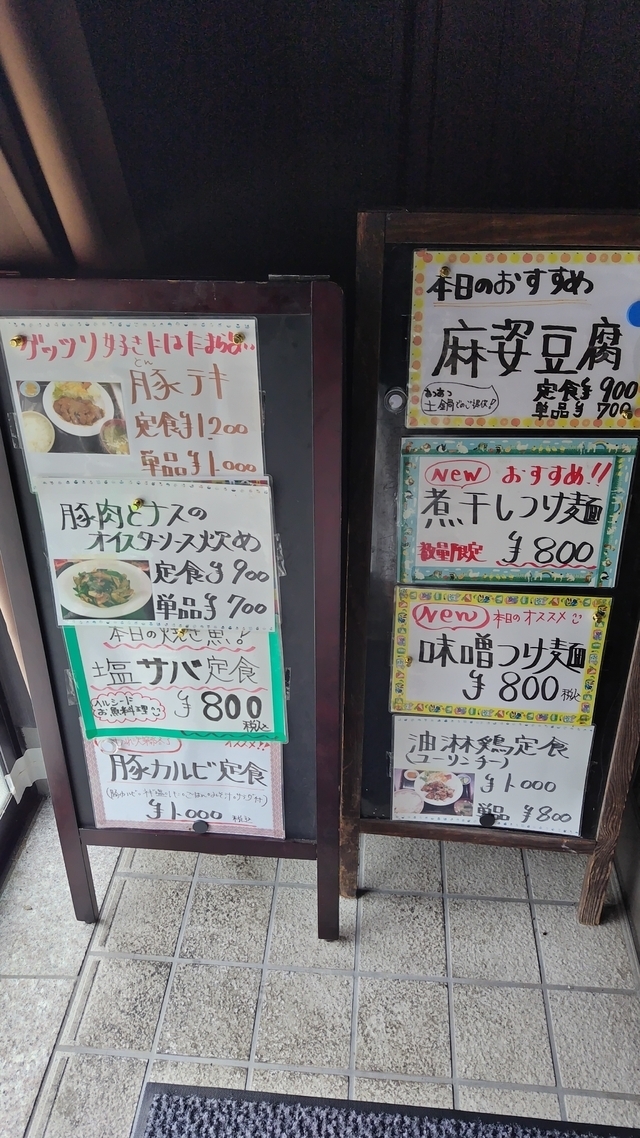 ガッツリ好きにはたまらない
とん
豚テキ
定食¥1200
単品¥1000
豚肉とナスの
オイスターソース炒め
定食¥900
単品¥700
本日の焼き魚!
塩サバ定食
ヘルシー
お魚料理
¥800
税込
豚カルビ定食
¥1000 税込
本日のおすすめ
麻婆豆腐
あつあつ
土鍋でのご提供!
定食¥900
単品¥700
New おすすめ!!
煮干しつけ麺
数量限定 ¥800
New 本日のオススメ
味噌つけ麺
¥800 税込
油淋鶏定食
(ユーリンチー)
¥1000
単品 ¥800